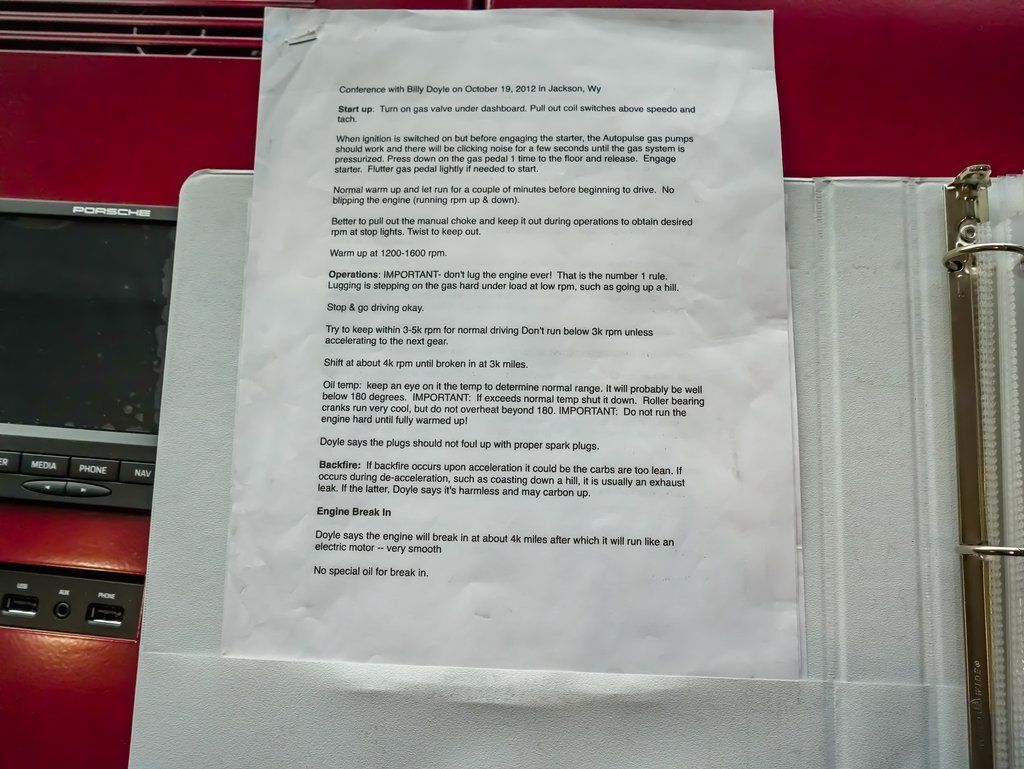 Conference with Billy Doyle on October 19, 2012 in Jackson, Wy
Start up: Turn on gas valve under dashboard. Pull out coil switches above speedo and
tach.
When ignition is switched on but before engaging the starter, the Autopulse gas pumps
should work and there will be clicking noise for a few seconds until the gas system is
pressurized. Press down on the gas pedal 1 time to the floor and release. Engage
starter. Flutter gas pedal lightly if needed to start.
Normal warm up and let run for a couple of minutes before beginning to drive. No
blipping the engine (running rpm up & down).
Better to pull out the manual choke and keep it out during operations to obtain desired
rpm at stop lights. Twist to keep out.
Warm up at 1200-1600 rpm.
Operations: IMPORTANT- don't lug the engine ever! That is the number 1 rule.
Lugging is stepping on the gas hard under load at low rpm, such as going up a hill.
Stop & go driving okay.
Try to keep within 3-5k rpm for normal driving Don't run below 3k rpm unless
accelerating to the next gear.
Shift at about 4k rpm until broken in at 3k miles.
Oil temp: keep an eye on it the temp to determine normal range. It will probably be well
below 180 degrees. IMPORTANT: If exceeds normal temp shut it down. Roller bearing
cranks run very cool, but do not overheat beyond 180. IMPORTANT: Do not run the
engine hard until fully warmed up!
Doyle says the plugs should not foul up with proper spark plugs.
Backfire: If backfire occurs upon acceleration it could be the carbs are too lean. If
occurs during de-acceleration, such as coasting down a hill, it is usually an exhaust
leak. If the latter, Doyle says it's harmless and may carbon up.
Engine Break In
Doyle says the engine will break in at about 4k miles after which it will run like an
electric motor -- very smooth
No special oil for break in.
PORSCHE
ER MEDIA PHONE NAV
USB AUX PHONE